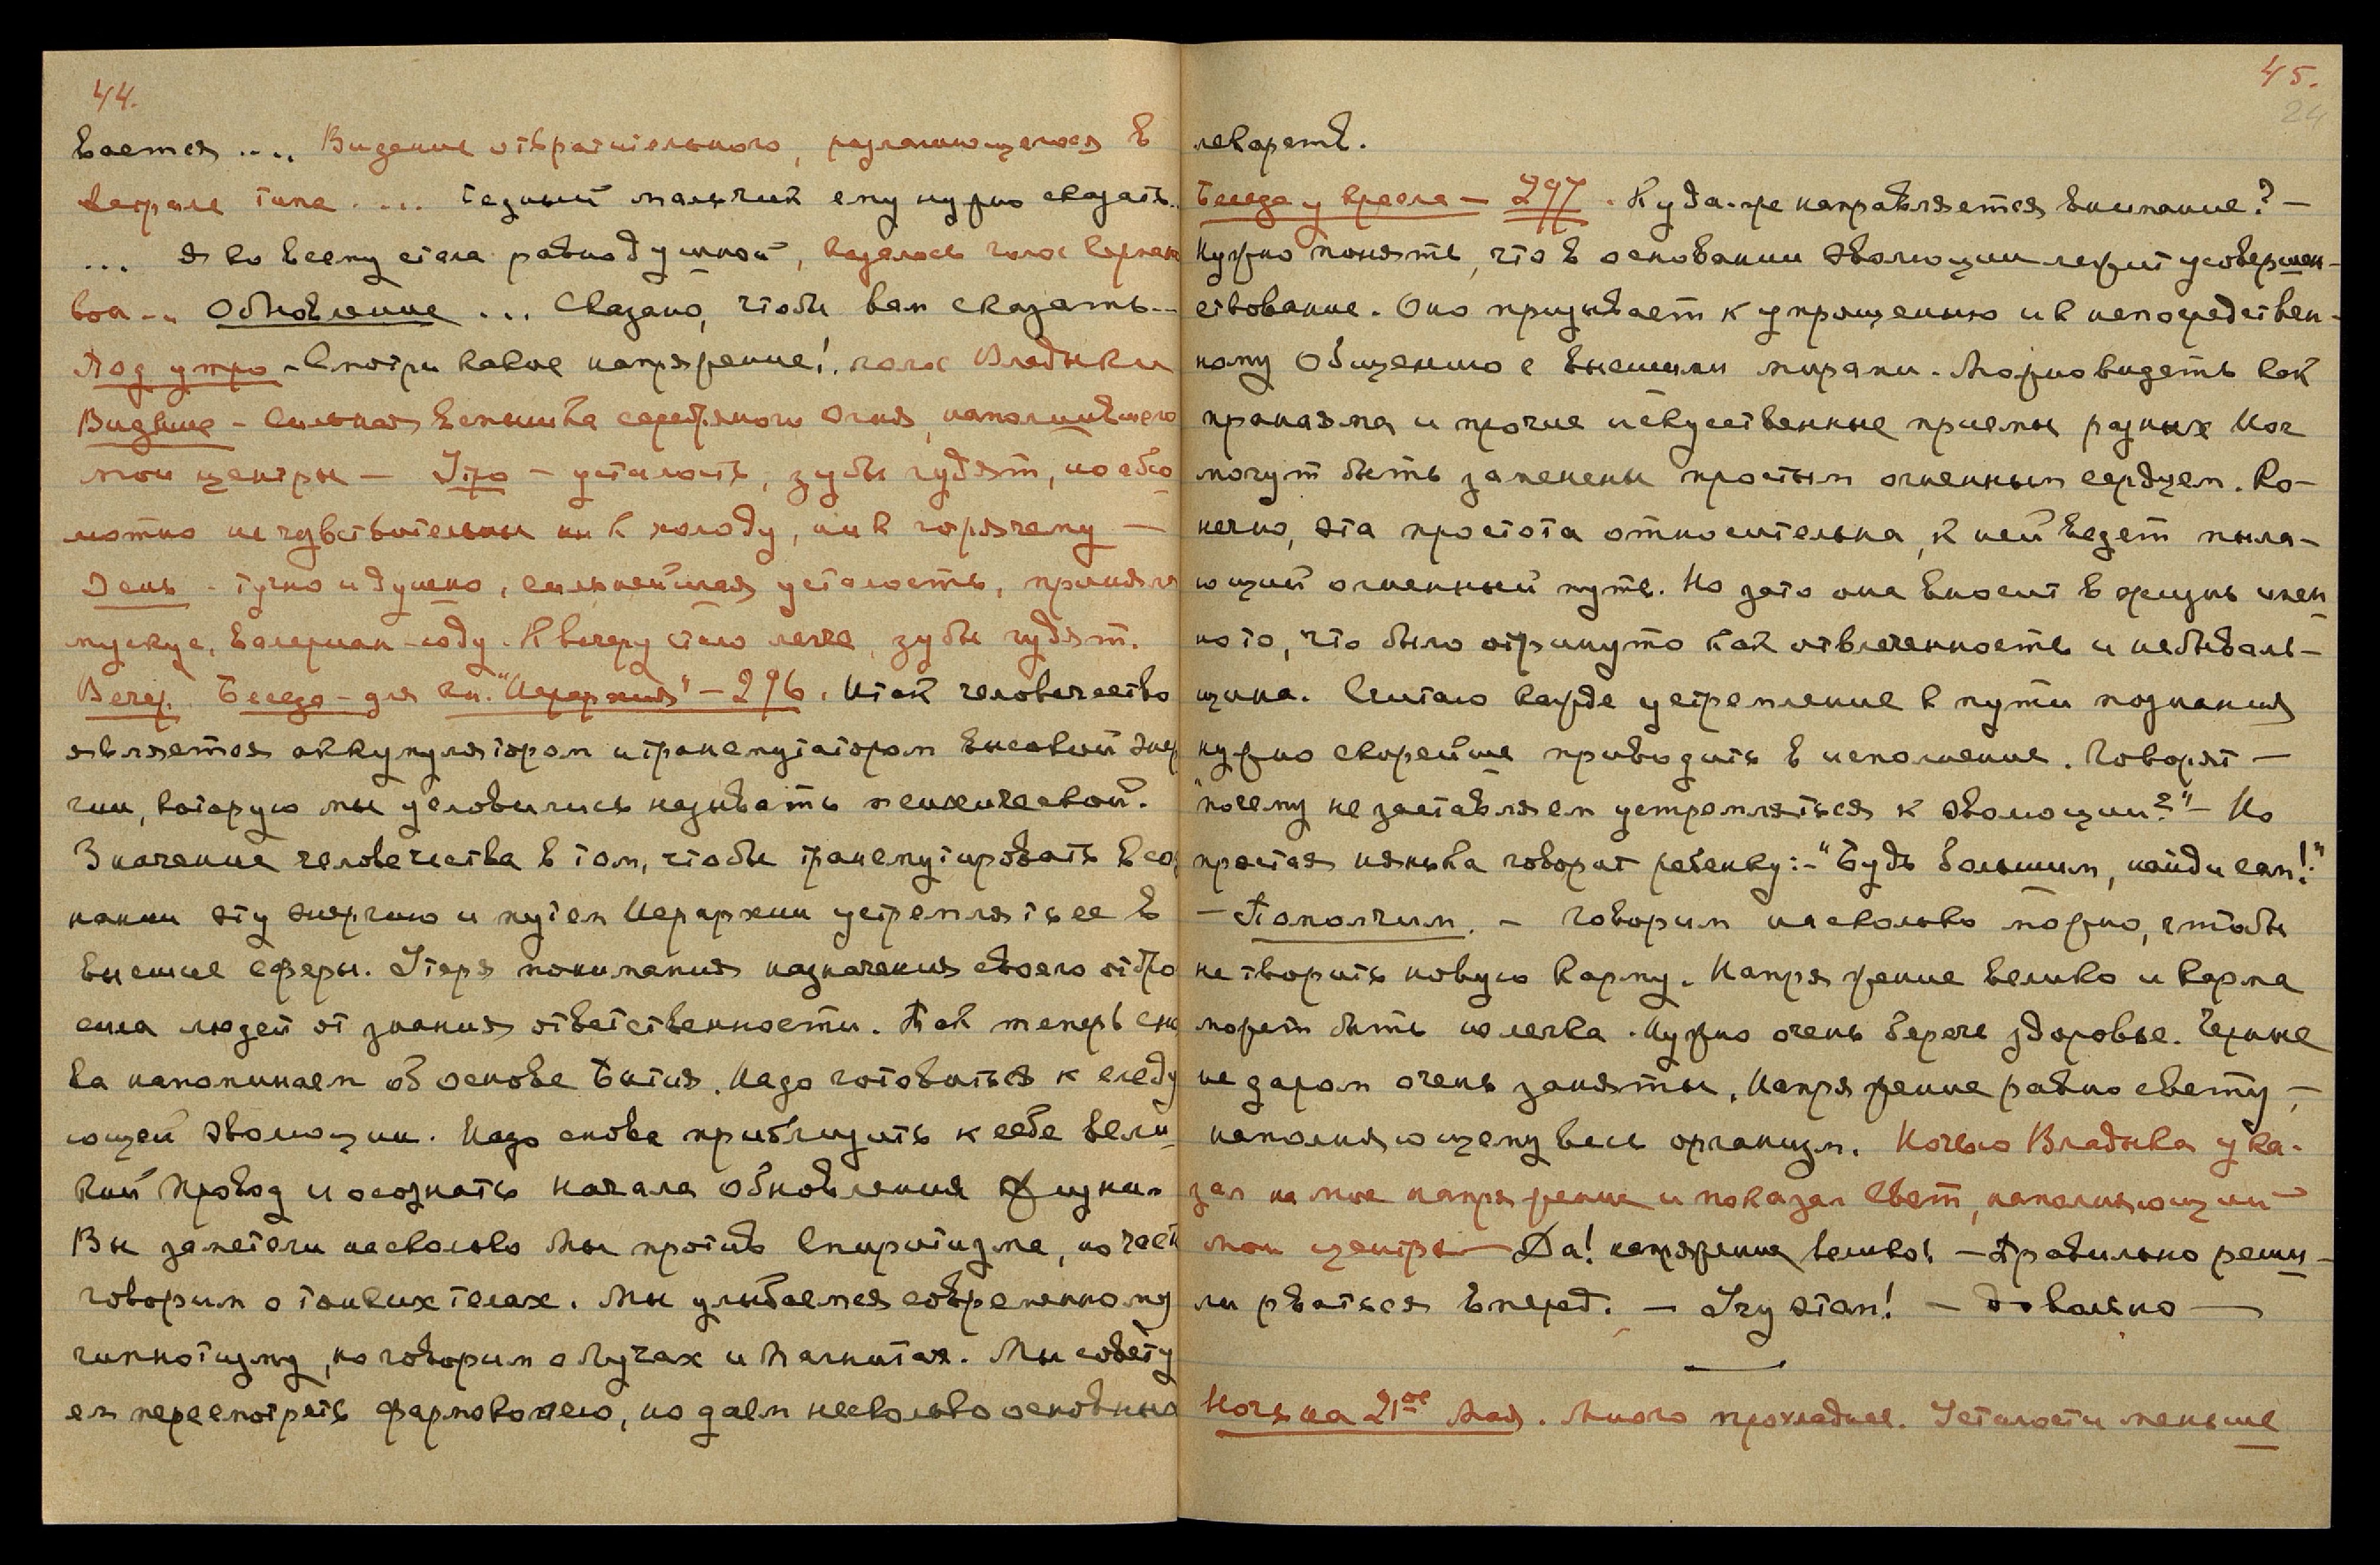 44.
вается .... Видение отвратительного, разлагающегося в
астрале типа .... бедный мальчик ему нужно сказать..
... я ко всему стала равнодушной, казалось голос
... Обновление ... Сказано, чтобы вам сказать...
Под утро - Смотри какое напряжение!. голос Владыки
Видение - Сильная вспышка серебряного Огня, наполнившего
мои центры — Утро - усталость, зубы гудят, но абсо
лютно не чувствительны ни к холоду, ни к горячему —
День - тучно и душно, сильнейшая усталость, приняла
мускус, валериан - соду. К вечеру стало легче, зубы гудят.
Вечер. Беседа - для кн. "Иерархия" - 296. Итак человечество
является аккумулятором и трансмутатором высокой энер
гии, которую мы условились называть психической.
Значение человечества в том, чтобы трансмутировать в соз
нании эту энергию и путем Иерархии устремлять ее в
высшие сферы. Утеря понимания назначения своего отбро
сила людей от знания ответственности. Так теперь сно
ва напоминаем об основе Бытия. Надо готовиться к следу
ющей эволюции. Надо снова приблизить к себе вели
кий провод и осознать начала обновления жизни.
Вы заметили насколько Мы против Спиритизма, но часто
говорим о тонких телах. Мы улыбаемся современному
гипнотизму, но говорим о Лучах и Магнитах. Мы совету
ем пересмотреть фармакопею, но даем несколько основных
45.
24
лекарств.
Беседа у кресла — 297. Куда-же направляется внимание? —
Нужно понять, что в основании эволюции лежит усовершен-
ствование. Оно призывает к упрощению и к непосредствен-
ному Общению с высшими мирами. Можно видеть как
пранаяма и прочие искусственные приемы разных Иог
могут быть заменены простым огненным сердцем. Ко-
нечно, эта простота относительна, к ней ведет пыла-
ющий огненный путь. Но зато она вносит в жизнь имен
но то, что было отринуто как отвлеченность и небываль-
щина. Считаю каждое устремление к пути познания
нужно скорейше приводить в исполнение. Говорят —
"почему не заставляем устремляться к эволюции?" — Но
простая нянька говорит ребенку: - "Будь большим, найди сам!"
— Помолчим. — Говорим насколько можно, чтобы
не творить новую карму. Напряжение велико и карма
может быть нелегка. Нужно очень беречь здоровье. Черные
не даром очень заняты. Напряжение равно свету, —
наполняющему весь организм. Ночью Владыка ука-
зал на мое напряжение и показал Свет, наполняющий
мои центры — Да! напряжение велико! — Правильно реши-
ли рваться вперед. — Учу этам! — Довольно —
Ночь на 21ое Мая. Много прохладнее. Усталости меньше